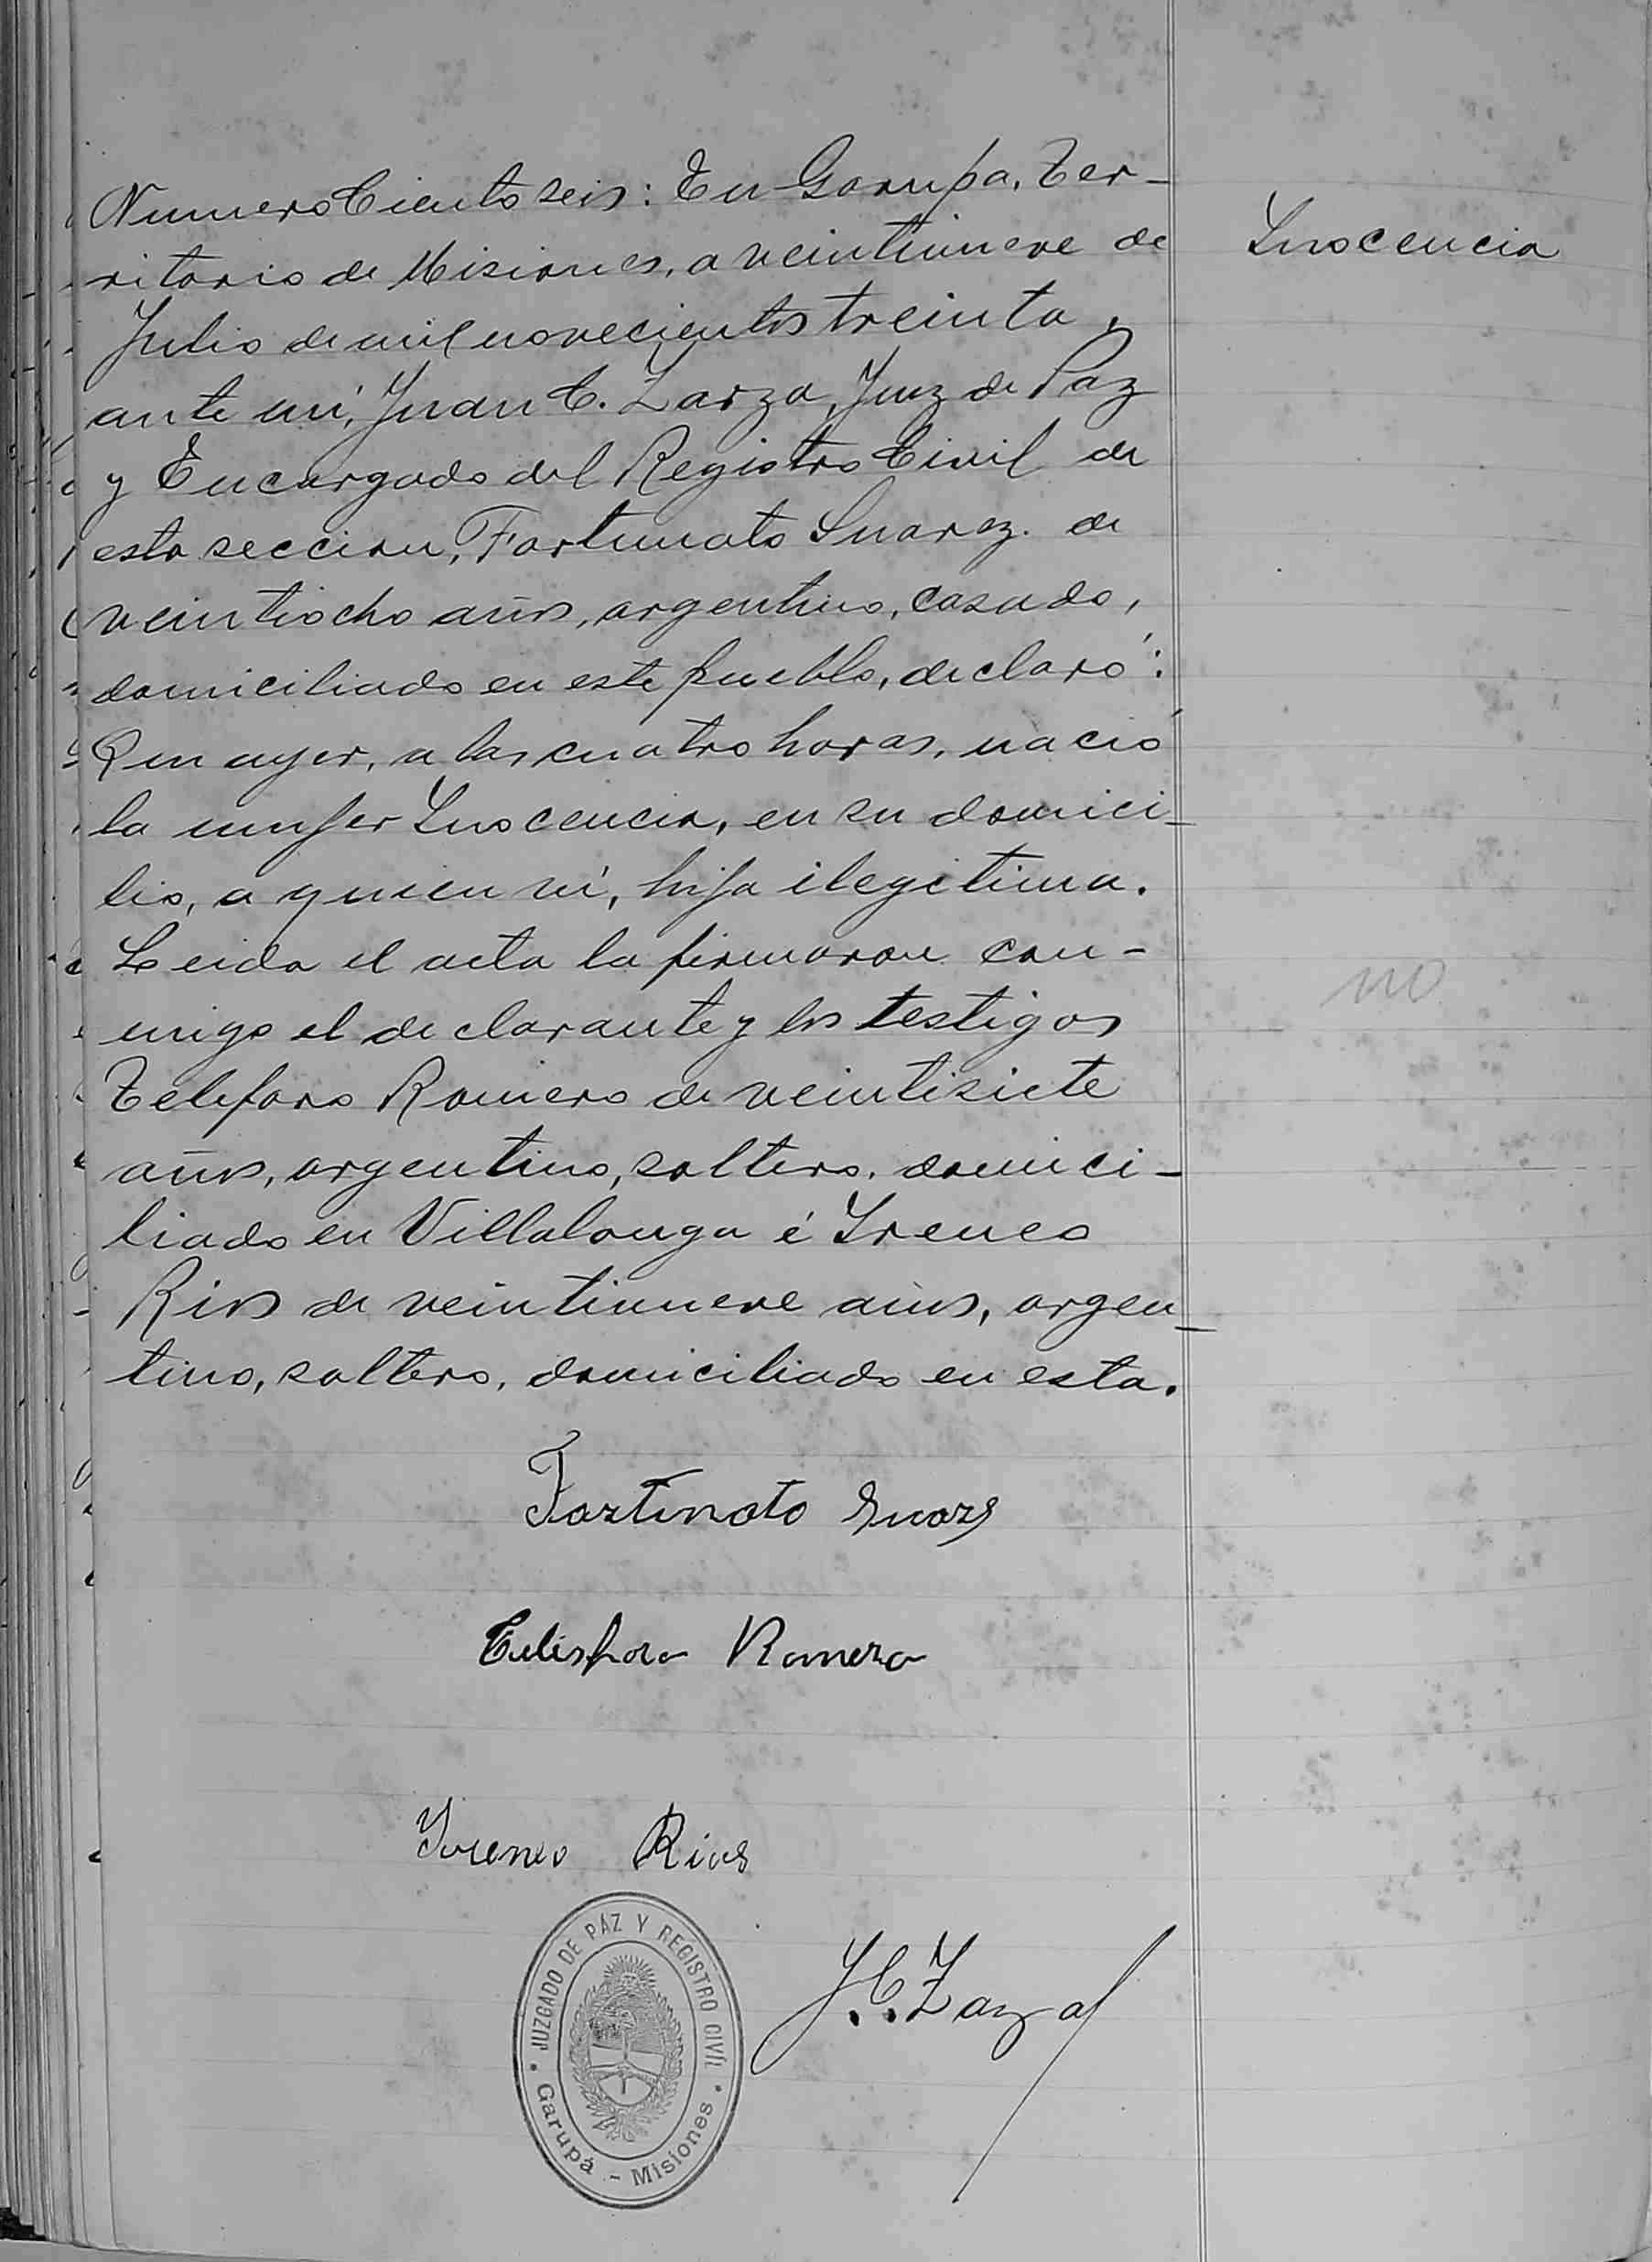 Numero Ciento seis: En Garupa, Ter-
ritorio de Misiones, a veintinueve de
Inocencia
Julio de mil novecientos treinta,
ante mi, Juan C. Zarza, Juez de Paz
y Encargado del Registro Civil de
esta seccion, Fortunato Suarez. de
veintiocho años, argentino, casado,
domiciliado en este pueblo, declaró:
Que ayer, a las cuatro horas, nació
la mujer Inocencia, en su domici-
lio, a quien ví, hija ilegitima.
Leida el acta la firmaron con-
migo el declarante y los testigos
Telefora Romero de veintisiete
años, argentino, soltero, domici-
liado en Villalonga é Ireneo
Rios de veintinueve años, argen-
tino, soltero, domiciliado en esta.
no
Fortunato Suarz
Telesfora Romero
Ireneo Rios
J. C. Zarza
JUZGADO DE PAZ Y REGISTRO CIVIL
Garupá - Misiones